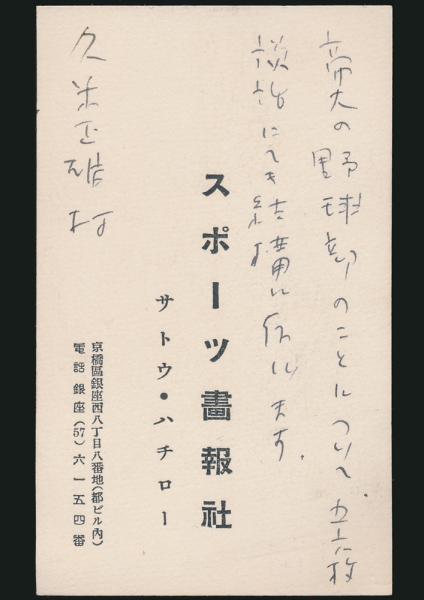 帝大の野球部のことについて五六枚
談話にても結構に候ます
スポーツ畫報社
サトウ・ハチロー
久米正雄様
京橋區銀座西八丁目八番地(都ビル內)
電話銀座(57)六一五四番